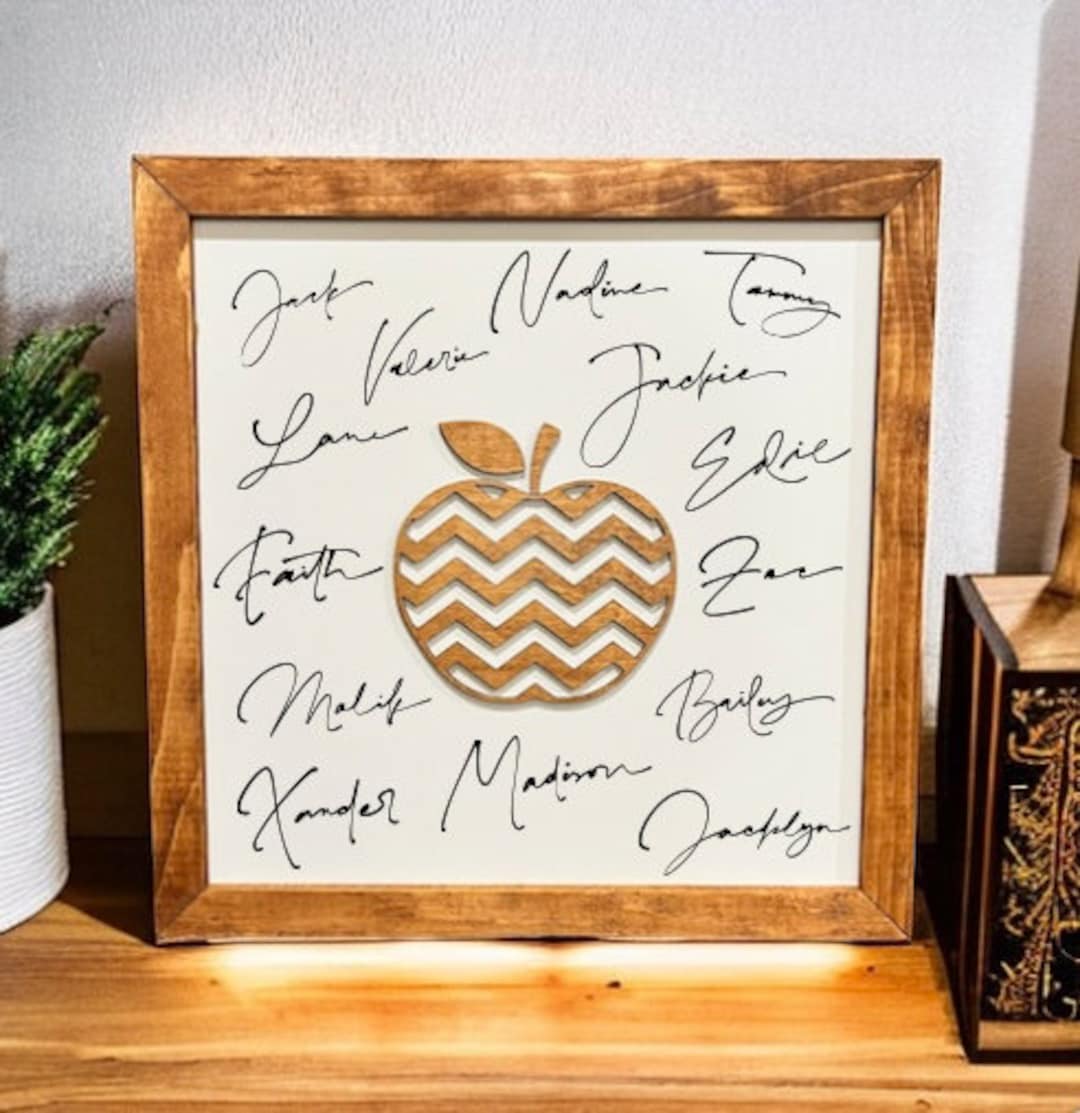 Jack
Nadine
Tammy
Valerie
Jackie
Lane
Edie
Faith
Zac
Malik
Bailey
Xander
Madison
Jacklyn